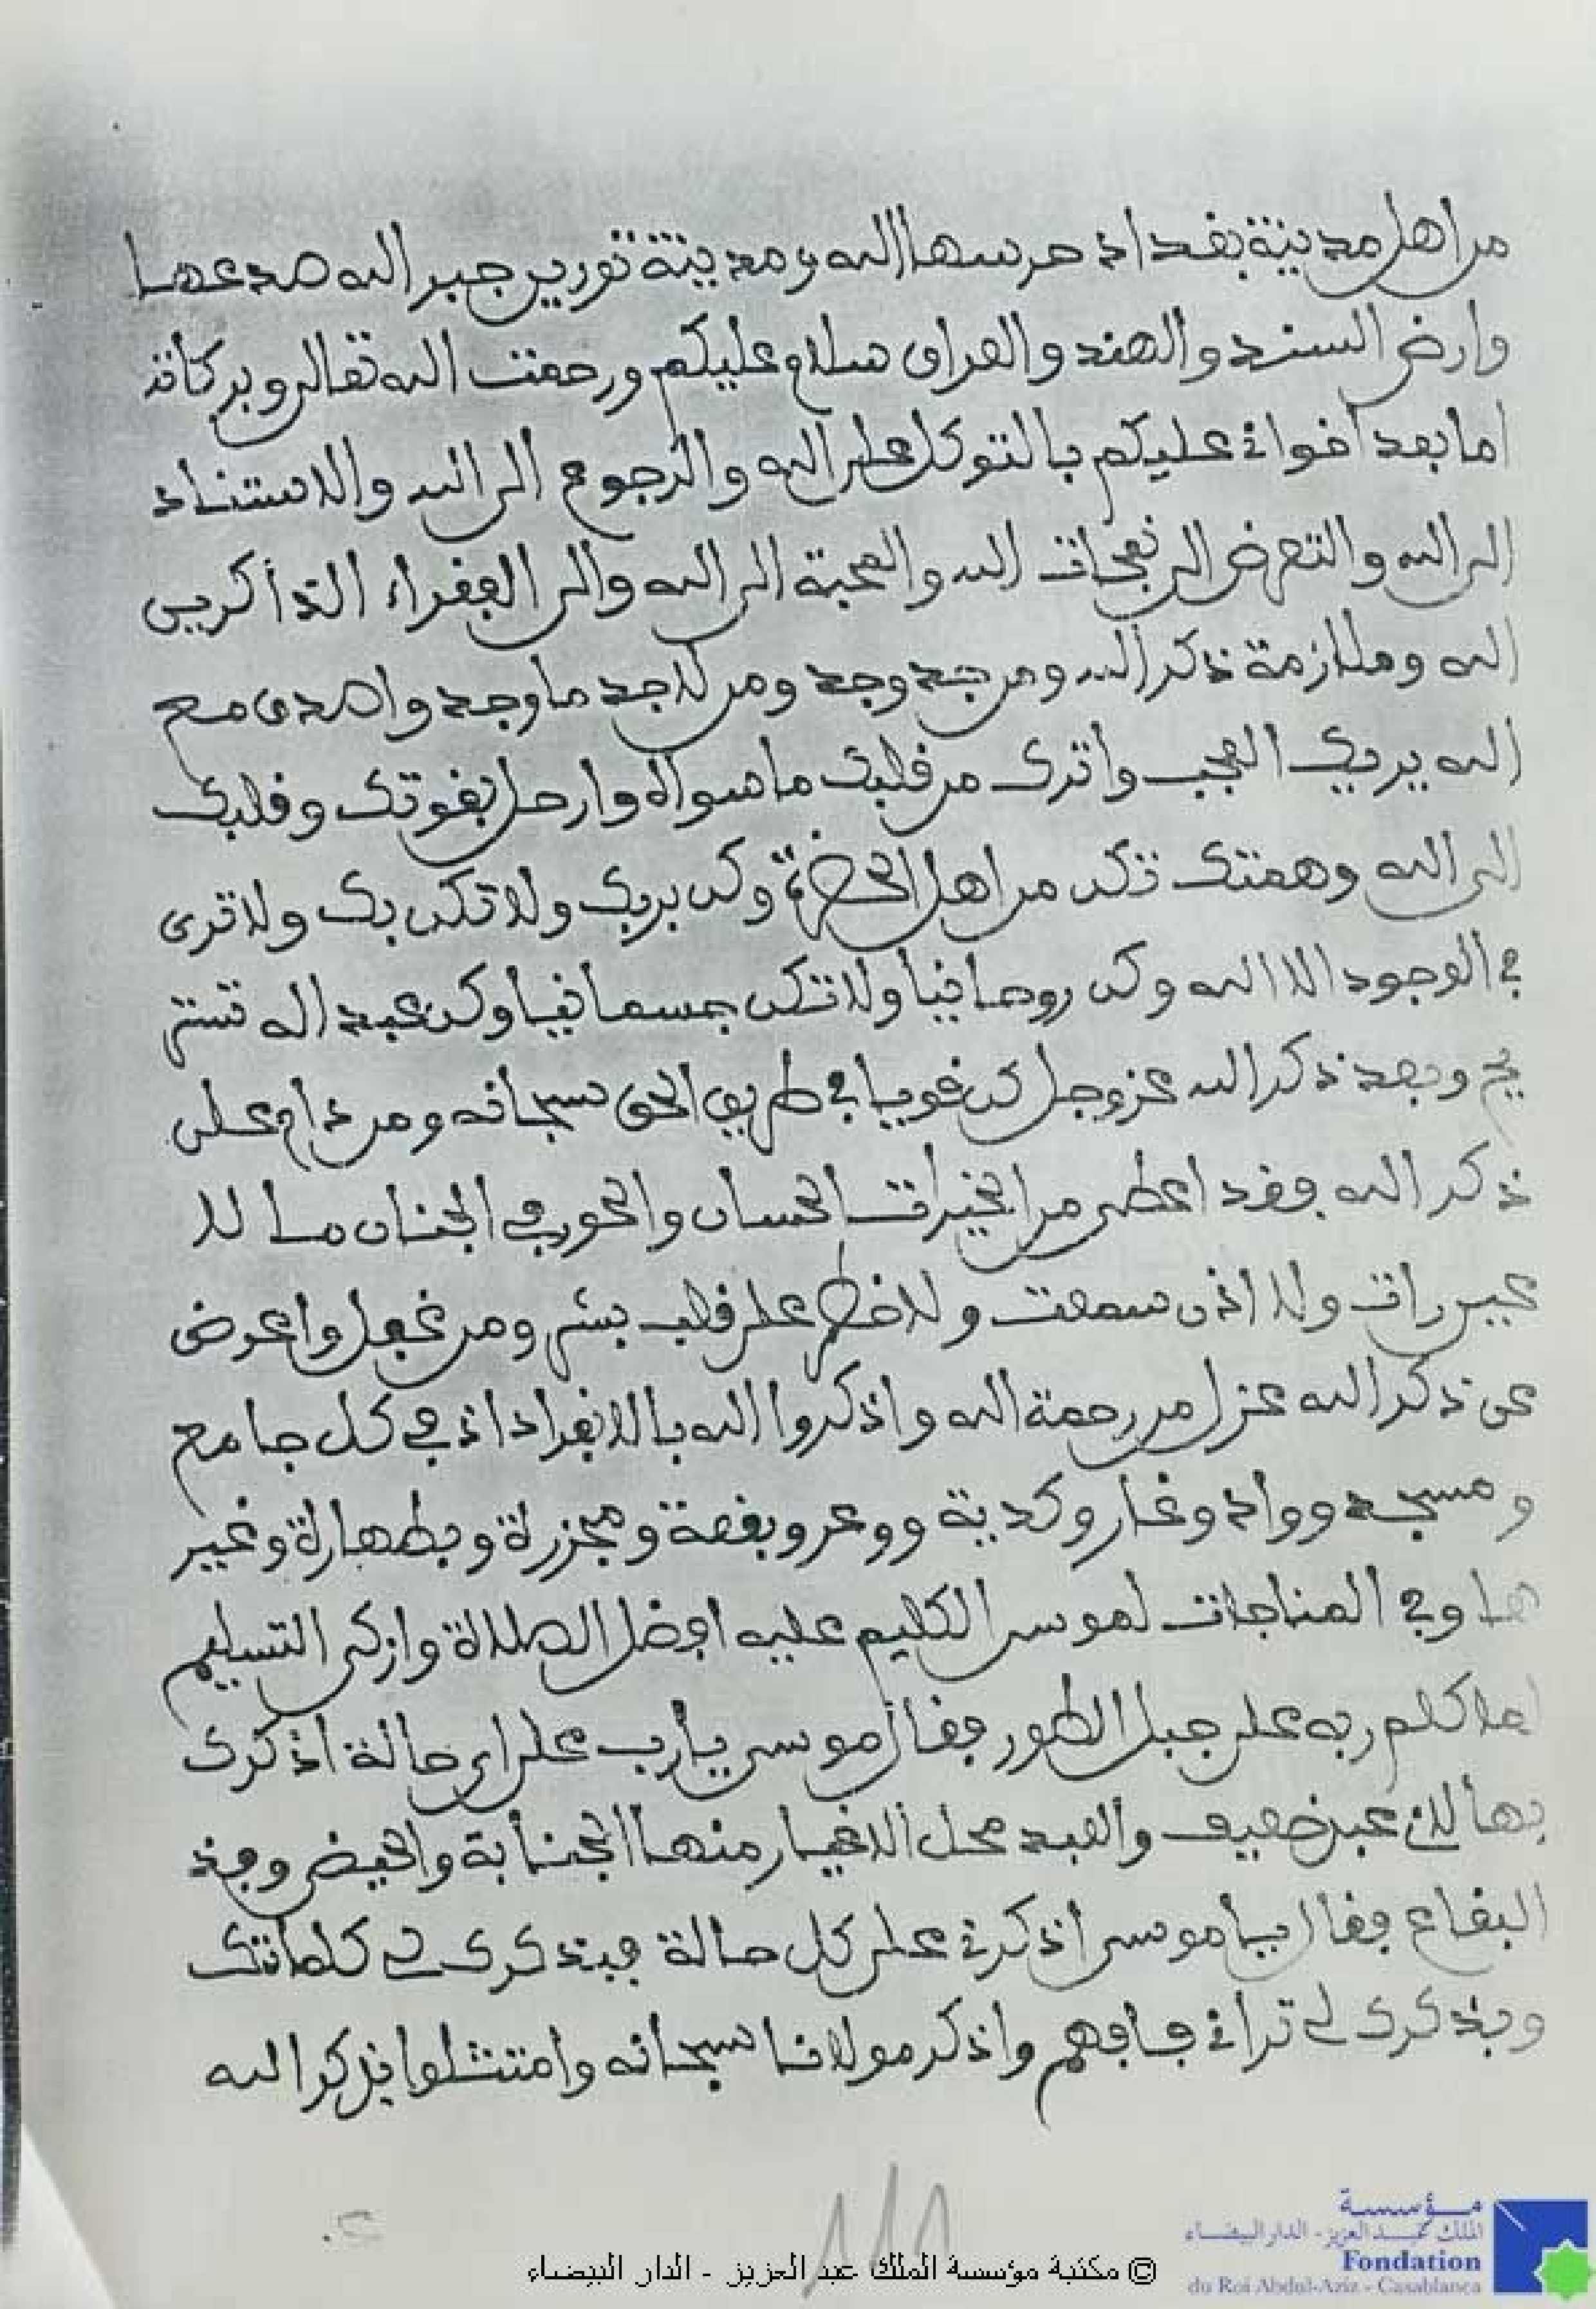 من اهل مدينة بغداد حرسها الله ومدينة توريز جبر الله صدعها
وارض السند والهند والعراق سلام عليكم ورحمت الله تعالى وبركاته
اما بعد اخواني عليكم بالتوكل على الله والرجوع الى الله والاستناد
الى الله والتعرض الى نفحات الله والمحبة الى الله والى الفقراء الذاكرين
الله وملازمة ذكر الله ومن جد وجد ومن لا جد ما وجد واصدق مع
الله يريك العجب واترك من قلبك ما سواه وارحل بقوتك وقلبك
الى الله وهمتك تكن من اهل الحضرة وكن بربك ولا تكن بك ولا ترى
في الوجود الا الله وكن روحانيا ولا تكن جسمانيا وكن عبد اله تستر
يح وبعد ذكر الله عز وجل كن قويا في طريق الحق سبحانه ومن دام على
ذكر الله فقد اعطى من الخيرات الحسان والحور في الجنان ما لا
عين رات ولا اذن سمعت ولا خطر على قلب بشر ومن غفل واعرض
عن ذكر الله عزل من رحمة الله واذكروا الله بالانفراداذ في كل جامع
ومسجد وواد وغار وكدية ووعر وبقعة ومجزرة وبطهارة وغير
ها وفي المناجات لموسى الكليم عليه افضل الصلاة وازكى التسليم
لما كلم ربه على جبل الطور فقال موسى يارب على اي حالة اذكرك
بها لاني عبد ضعيف والعبد محل الاغيار منها الجنابة والحيض وفذ
البقاع فقال يا موسى اذكرني على كل حالة فبذكرك لي كلمتك
وبذكرك لي تراني فافهم واذكر مولانا سبحانه وامتثلوا بذكر الله
111
© مكتبة مؤسسة الملك عبد العزيز - الدار البيضاء
مؤسسة
الملك عبد العزيز - الدار البيضاء
Fondation
du Roi Abdul-Aziz - Casablanca